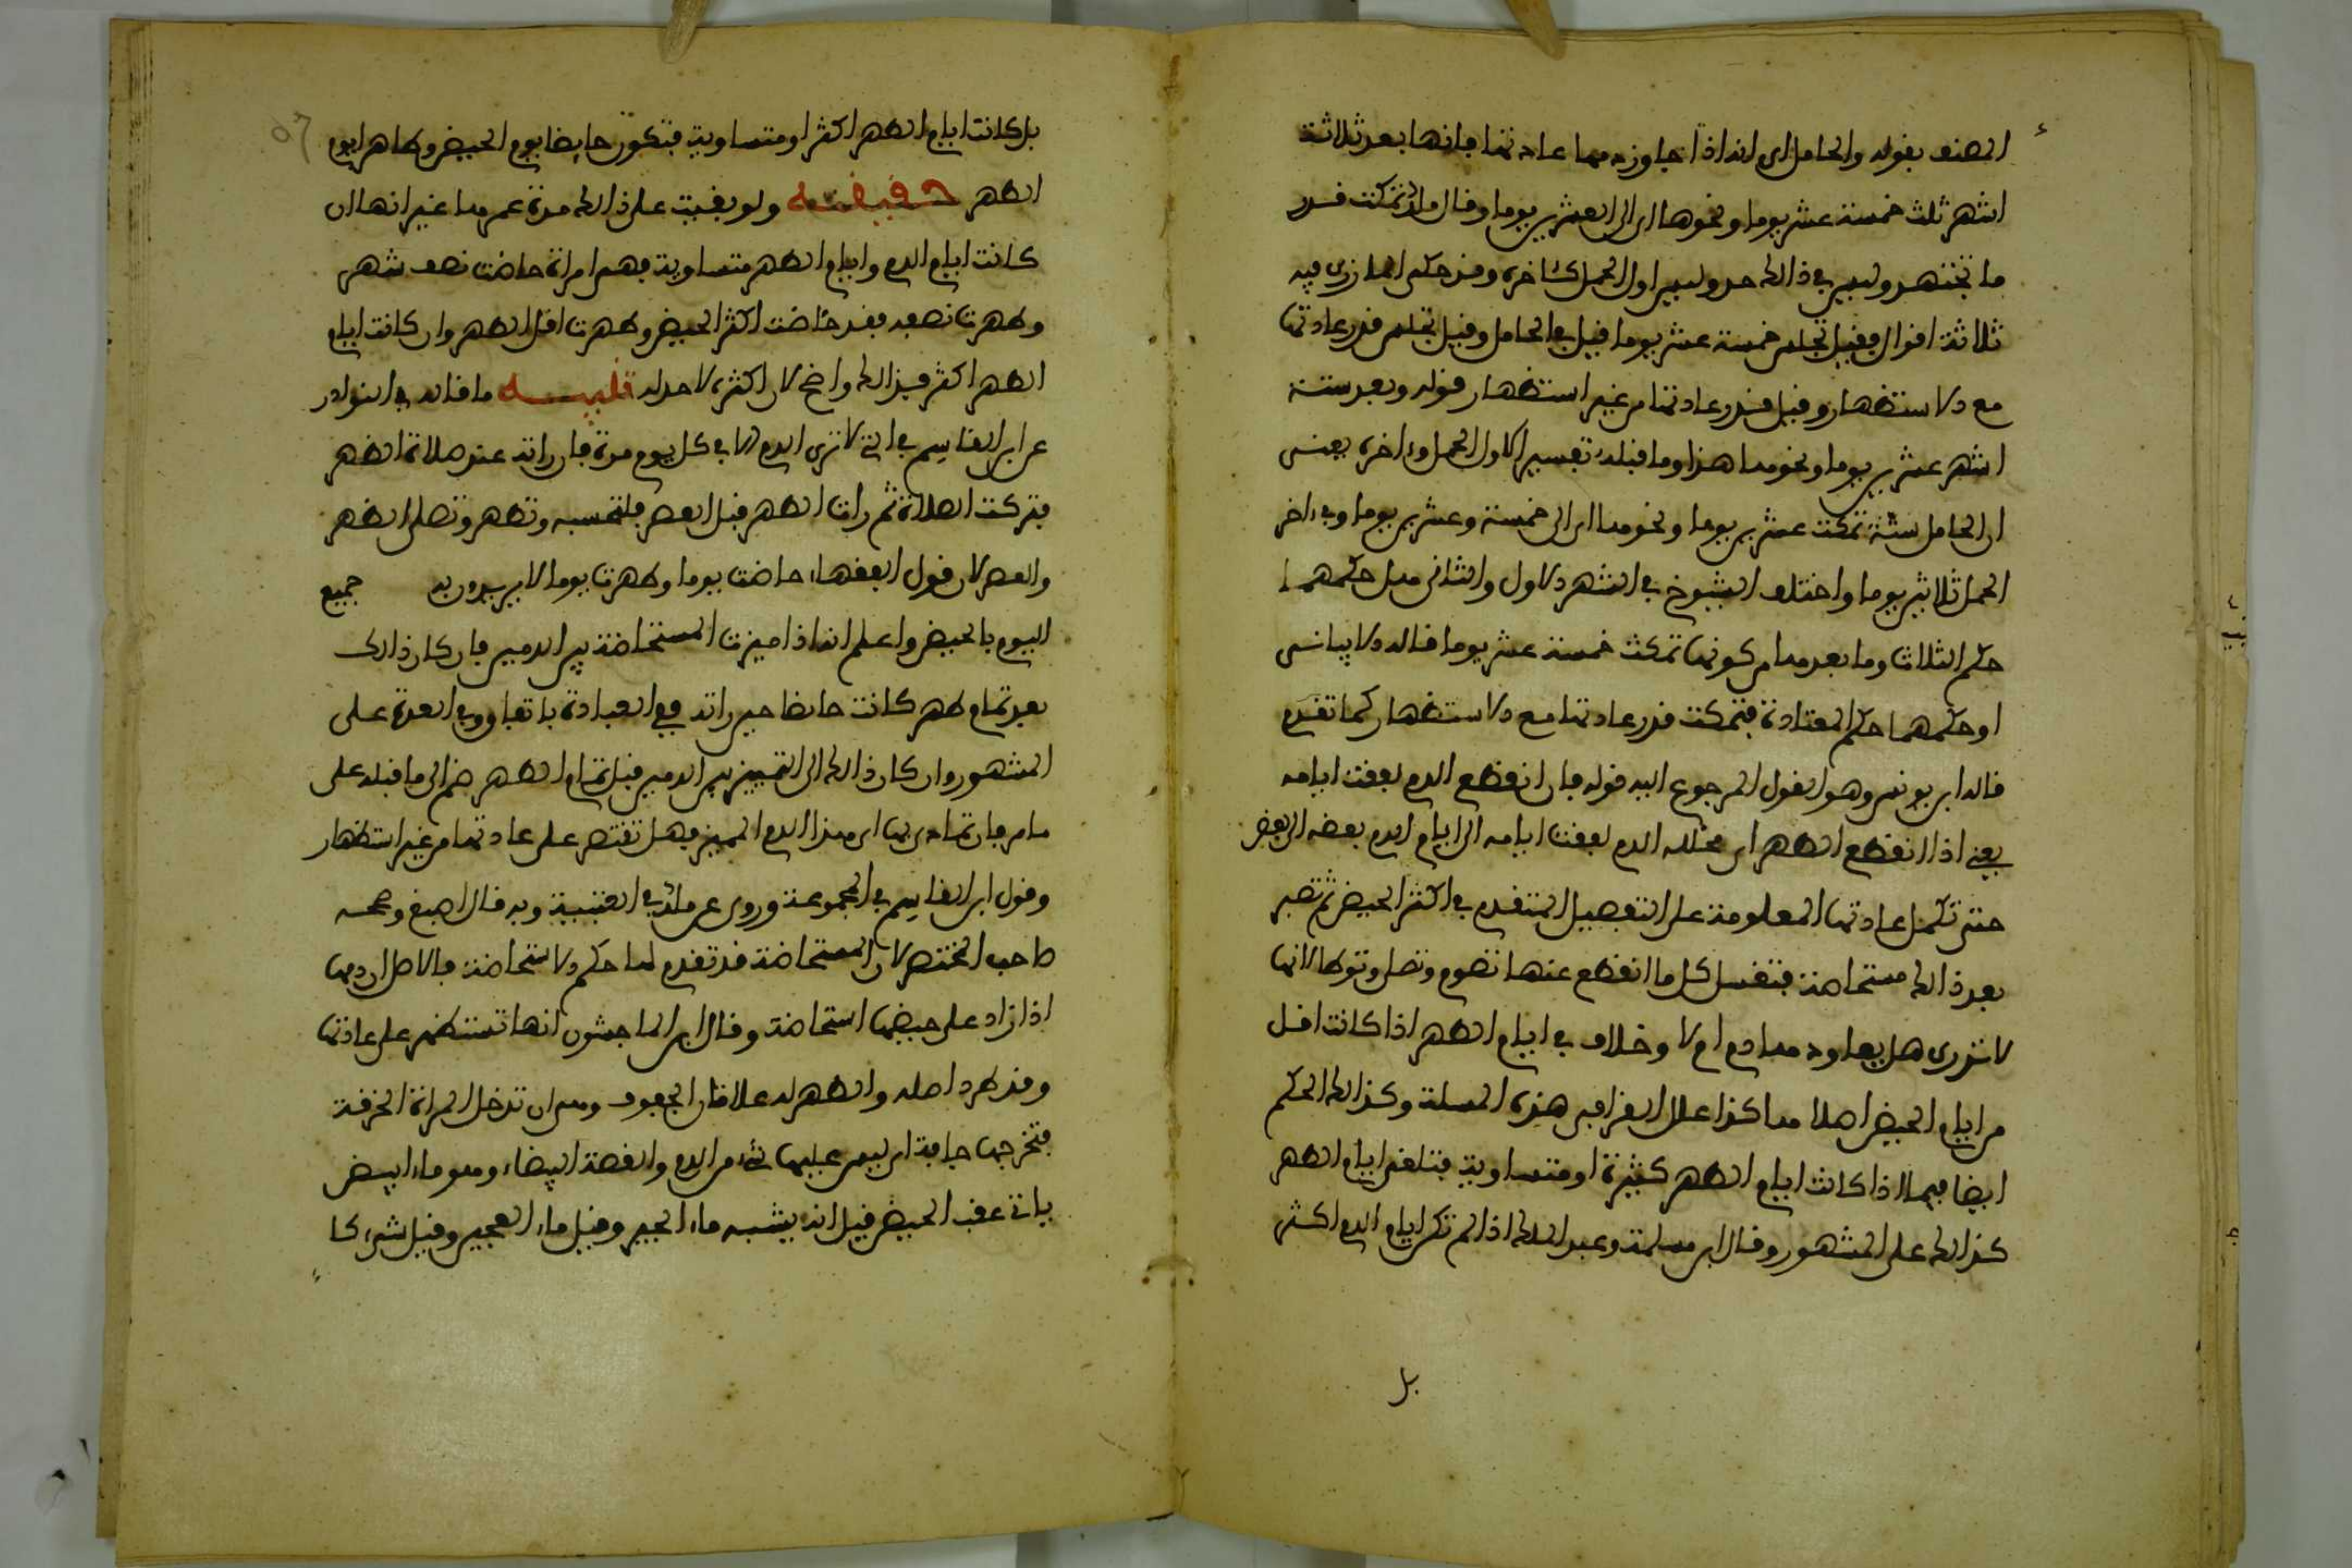 المصنف بقوله والحامل اي انه اذا جاوز دمها عادتها فانها بعد ثلاثة
اشهر ثلث خمسة عشر يوما ونحوها اي الى العشرين يوما وقال مالك تمكث قدر
ما تجتهد وليس في ذالك حد وليس اول الحمل كئاخره وقد حكى المازري فيه
ثلاثة اقوال فقيل تجلس خمسة عشر يوما قيل في الحامل وقيل تجلس قدر عادتها
مع الاستظهار وقيل قدر عادتها من غير استظهار قوله وبعد ستة
اشهر عشرين يوما ونحوها هذا وما قبله تفسير لاول الحمل وءاخره يعني
ان الحامل ستة تمكث عشرين يوما ونحوها اي الى خمسة وعشرين يوما وفي ءاخر
الحمل ثلاثين يوما واختلف الشيوخ في الشهر الاول والثاني هل حكمهما
حكم الثلاث وما بعدها من كونها تمكث خمسة عشر يوما قاله الابياني
او حكمهما حكم المعتادة فتمكث قدر عادتها مع الاستظهار كما تقدم
قاله ابن يونس وهو القول المرجوع اليه قوله فان انقطع الدم لفقت ايامه
يعني اذا انقطع الطهر اي تخلله الدم لفقت ايامه اي ايام الدم بعضه الى بعض
حتى تكمل عادتها المعلومة على التفصيل المتقدم في اكثر الحيض ثم تصير
بعد ذالك مستحاضة فتغسل كل ما انقطع عنها تصوم وتصلي وتوطا لانها
لا تدري هل يعاودها دم ام لا وخلاف في ايام الطهر اذا كانت اقل
من ايام الحيض اصلا هاكذا علل القرافي هذه المسلة وكذالك الحكم
ايضا فيها اذا كانت ايام الطهر كثيرة او متساوية فتلغى ايام الطهر
كذالك على المشهور وقال ابن مسلمة وعبد الملك اذا لم تكن ايام الدم اكثر
بل
بل كانت ايام الطهر اكثر او متساوية فتكون حايضا يوم الحيض وطاهرا يوم
الطهر حقيقة ولو بقيت على ذالك مدة عمرها غير انها ان
كانت ايام الدم وايام الطهر متساوية فهي امراة حاضت نصف شهر
وطهرت نصفه فقد حاضت اكثر الحيض وطهرت اقل الطهر وان كانت ايام
الطهر اكثر فبذالك واضح لان اكثره لا حد له تنبيه ما قاله في النوادر
عن ابن القاسم في التي لا ترى الدم الا في كل يوم مرة فان راته عند صلاة الظهر
فتركت الصلاة ثم رات الطهر قبل العصر فلتحسبه وتطهر وتصلي الظهر
والعصر لان قول الفقهاء حاضت يوما وطهرت يوما لا يريدون به جميع
اليوم بالحيض واعلم انه اذا ميزت المستحاضة بين الدمين فان كان ذالك
بعد تمام طهر كانت حايضا حين راته في العبادة باتفاق وفي العدة على
المشهور وان كان ذالك اي التمييز بين الدمين قبل تمام الطهر ضم الى ما قبله على
ما مر فان تمادى بها اي هذا الدم المميز فهل تقتصر على عادتها من غير استظهار
وقول ابن القاسم في المجموعة وروى عن مالك في العتبية وبه قال اصبغ وصححه
صاحب المختصر لان المستحاضة قد تقدم لها حكم الاستحاضة فالاصل ان دمها
اذا زاد على حيضها استحاضة وقال ابن الماجشون انها تستظهر على عادتها
وقد طرد اصله والطهر له علامتان الجفوف وهي ان تدخل المراة الخرقة
فتخرجها جافة اي ليس عليها شيء من الدم والقصة البيضاء وهو ماء ابيض
ياتي عقب الحيض قيل انه يشبه ماء الجير وقيل ماء العجين وقيل شيء كا